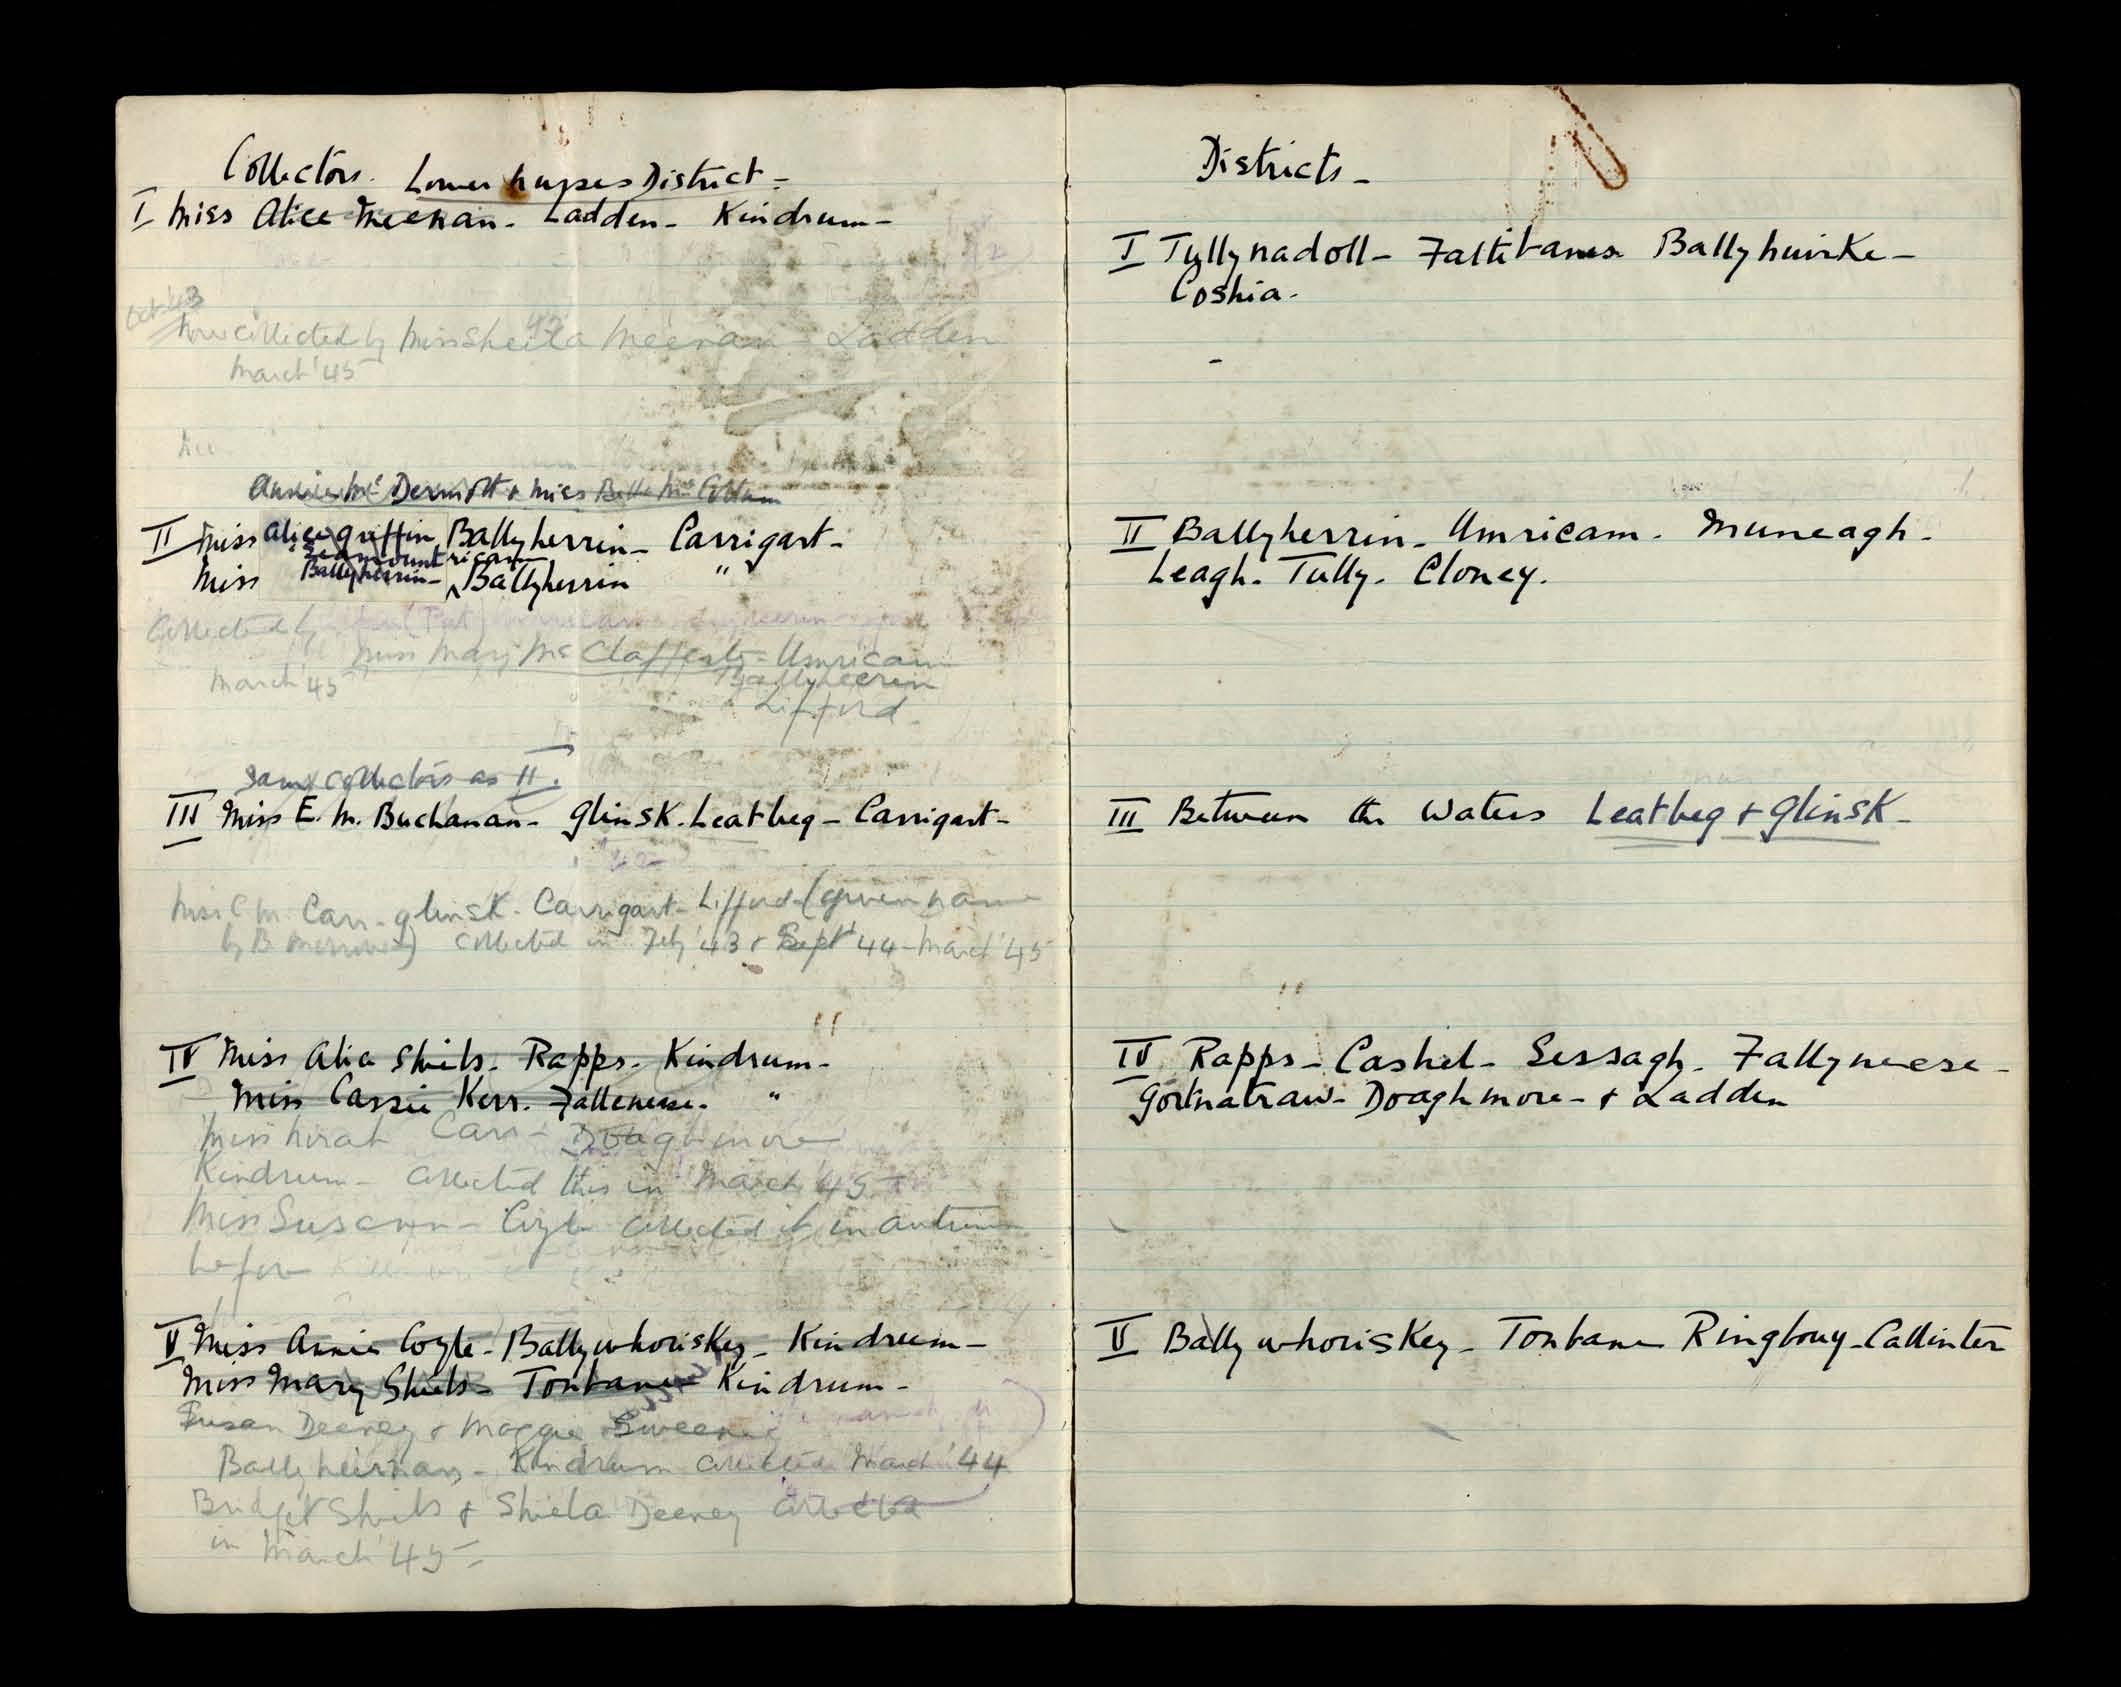 Collectors. Lower nurses District -
I Miss Alice Meenan - Ladden - Kindrum -
Oct 43
Now collected by Miss Sheila Meenan - Ladden
March '45
Annie Mc Dermott + Miss Bella Mc Collum
II Miss Alice Griffin Ballyherrin - Carrigart -
Seamount
Miss Ballyherrin - Ballyherrin "
Collected by
Miss Mary Mc Clafferty - Umricam
March '45 Ballyheerin
Lifford
Same collectors as II.
III Miss E. M. Buchanan - Glinsk. Leatbeg - Carrigart -
Miss C M. Carr - Glinsk - Carrigart - Lifford (given name
by B. ) collected in Feb '43 + Sept '44 - March '45
IV Miss Alice Shiels - Rapps - Kindrum -
Miss Cassie Kerr. Falleneese - "
Miss Norah Carr - Doaghmore
Kindrum - collected this in March '45
Miss Susan - Coyle collected it in autumn
before
V Miss Annie Coyle - Ballywhoriskey - Kindrum -
Miss Mary Shiels - Tonbane - Kindrum -
Susan Deeney + Maggie Sweeney
Ballyheirnan - Kindrum collected March '44
Bridget Shiels + Shiela Deeney collected
in March '45 -
Districts -
I Tullynadoll - Faltibanes Ballyhuirke -
Coshia.
II Ballyherrin - Umricam. Muneagh.
Leagh. Tully. Cloney.
III Between the Waters Leatbeg + Glinsk -
IV Rapps - Cashel - Sessagh. Fallyneese -
Gortnatraw - Doaghmore - + Ladden
V Ballywhoriskey - Tonbane Ringbouy - Callinter